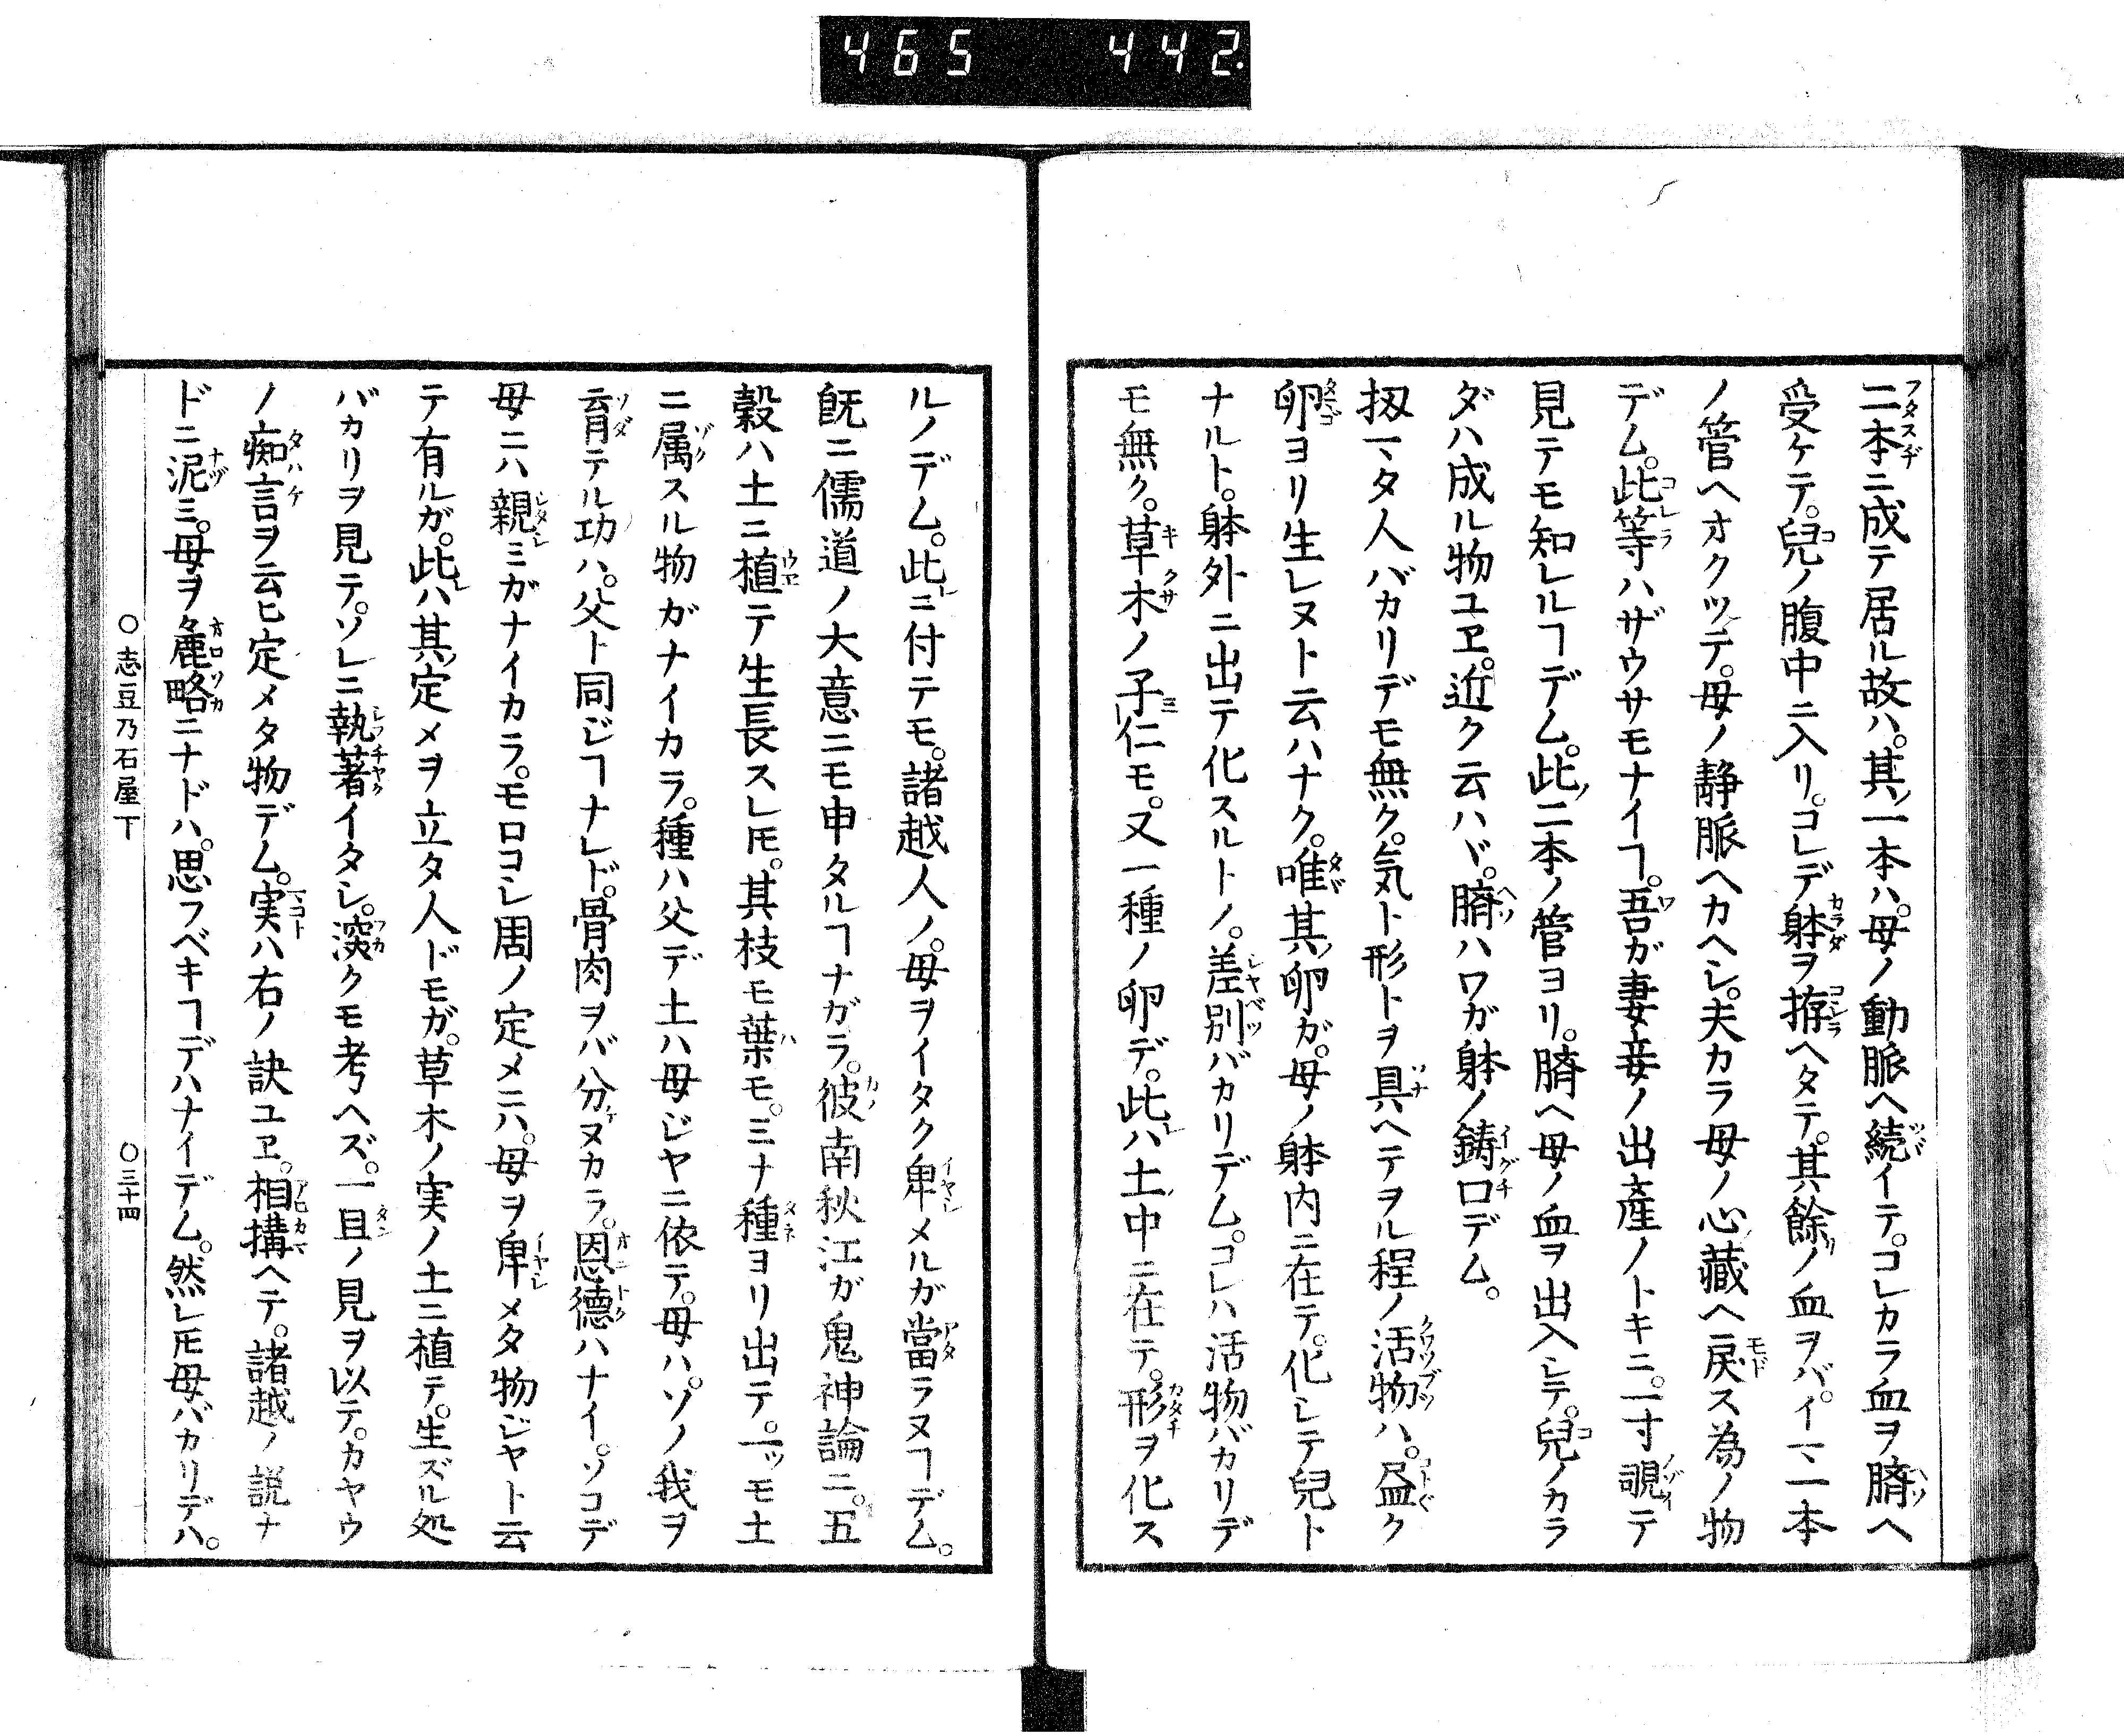 465 442.
二本ニ成テ居ル故ハ。其ノ一本ハ。母ノ動脈ヘ続イテ。コレカラ血ヲ臍ヘ
受ケテ。兒ノ腹中ニ入リ。コレデ躰ヲ拵ヘタテ。其餘リノ血ヲバ。イマ一本
ノ管ヘオクツテ。母ノ静脈ヘカヘシ。夫カラ母ノ心藏ヘ戻ス為ノ物
デム。此等ハザウサモナイヿ。吾ガ妻妾ノ出産ノトキニ。一寸覗イテ
見テモ知レルヿデム。此ノ二本ノ管ヨリ。臍ヘ母ノ血ヲ出入レテ。兒ノカラ
ダハ成ル物ユヱ。近ク云ハヾ。臍ハワガ躰ノ鋳口デム。
扨マタ人バカリデモ無ク。気ト形トヲ具ヘテヲル程ノ活物ハ。盡ク
卵ヨリ生レヌト云ハナク。唯其ノ卵ガ。母ノ躰内ニ在テ。化レテ兒ト
ナルト。躰外ニ出テ化スルトノ。差別バカリデム。コレハ活物バカリデ
モ無ク。草木ノ子仁モ。又一種ノ卵デ。此レハ土ノ中ニ在テ。形ヲ化ス
ルノデム。此レニ付テモ。諸越人ノ。母ヲイタク卑メルガ當ラヌヿデム。
既ニ儒道ノ大意ニモ申タルヿナガラ。彼ノ南秋江ガ鬼神論ニ。五
穀ハ土ニ植テ生長スレ𪜈。其枝モ葉モ。ミナ種ヨリ出テ。一ツモ土
ニ属スル物ガナイカラ。種ハ父デ土ハ母ジヤニ依テ。母ハ。ソノ我ヲ
育テル功ハ。父ト同ジヿナレド。骨肉ヲバ分ケヌカラ。恩德ハナイ。ソコデ
母ニハ親ミガナイカラ。モロコシ周ノ定メニハ。母ヲ卑メタ物ジヤト云
テ有ルガ。此レハ其ノ定メヲ立タ人ドモガ。草木ノ実ノ土ニ植テ。生ズル処
バカリヲ見テ。ソレニ執著イタシ。深クモ考ヘズ。一旦ノ見ヲ以テ。カヤウ
ノ痴言ヲ云ヒ定メタ物デム。実ハ右ノ訣ユヱ。相構ヘテ。諸越ノ説ナ
ドニ泥ミ。母ヲ麁略ニナドハ。思フベキヿデハナイデム。然レ𪜈母バカリデハ。
○志豆乃石屋下 ○三十四